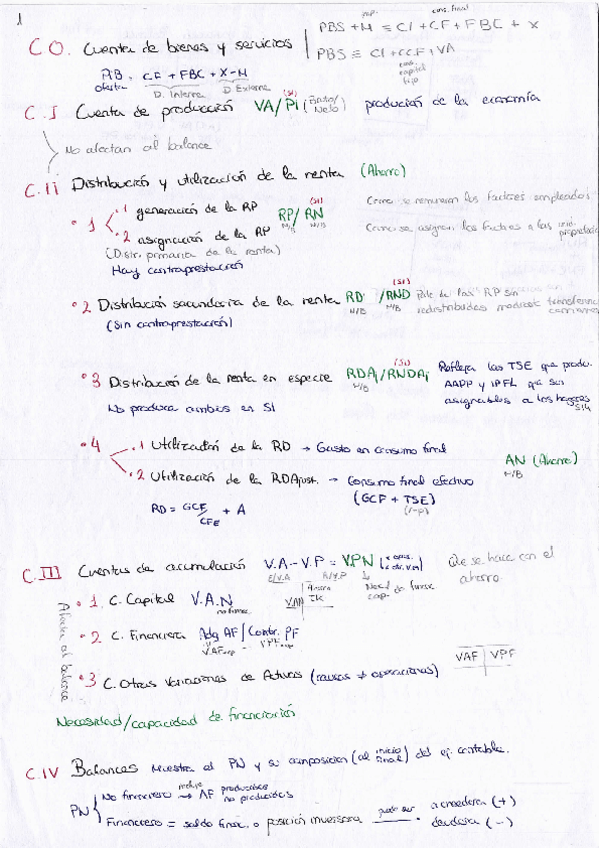 1
C 0. Cuenta de bienes y servicios
imp. cons. final
PBS + M ≡ CI + CF + FBC + X
PBS ≡ CI + CCF + VA
cons. capital fijo
CF + FBC + X - M
oferta D. Interna D. Externa
C. I Cuenta de producción VA/PI (Bruto/Neto) producción de la economía
(SI)
No afectan al balance
C. II Distribución y utilización de la renta (Ahorro)
1
.1 generación de la RP RP/RN Como se remuneran los factores empleados
(SI)
N/B N/B
.2 asignación de la RP Como se asignan los factores a las
(Distr. primaria de la renta)
Hay contraprestación
2 Distribución secundaria de la renta RD /RND
(SI)
N/B N/B
redistribuidas mediante transferen.
(Sin contraprestación)
3 Distribución de la renta en especie RDAj/RNDAj Refleja las TSE que produ.
(SI)
N/B
AAPP y IPFL que son
asignables a los hogares
No produce cambios en SI
4
.1 Utilización de la RD → Gasto en consumo final
AN (Ahorro)
N/B
.2 Utilización de la RDAjust. → Consumo final efectivo
(GCF + TSE)
RD = GCF/CFE + A
C. III Cuentas de acumulación V.A - V.P = VPN Que se hace con el
ahorro.
Afecta al balance
1. C. Capital V.A.N
VAN Ahorro
2 C. Financiera Adq AF / Contr. PF
3 C. Otras Variaciones de Activos (causas ≠ operaciones) VAF VPF
Necesidad/capacidad de financiación
C. IV Balances Muestra el PN y su composición (al inicio/final) del ej. contable.
PN
No financiero → AF producidos
no producidos
Financiero = saldo finan. o posición inversora puede ser acreedora (+)
deudora (-)